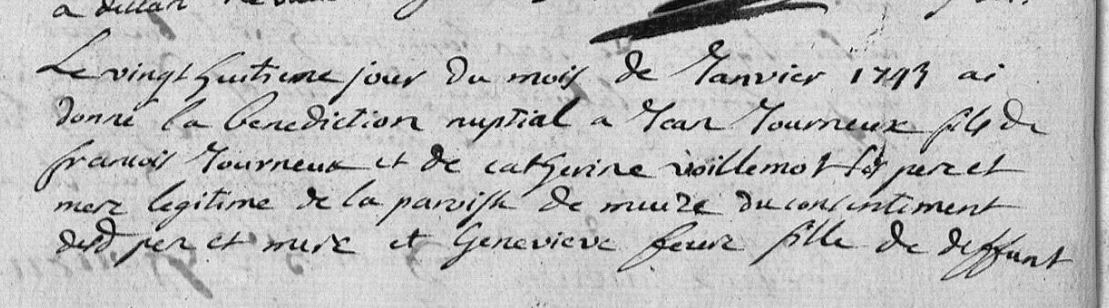 Le vingt huitieme jour du mois de Janvier 1743 ai
donné la benediction nuptial a Jean Tourneux fils de
francois Tourneux et de catherine voillemot ses pere et
mere legitime de la paroisse de meuze du consentiment
desd per et mere et Genevieve feure fille de deffunt